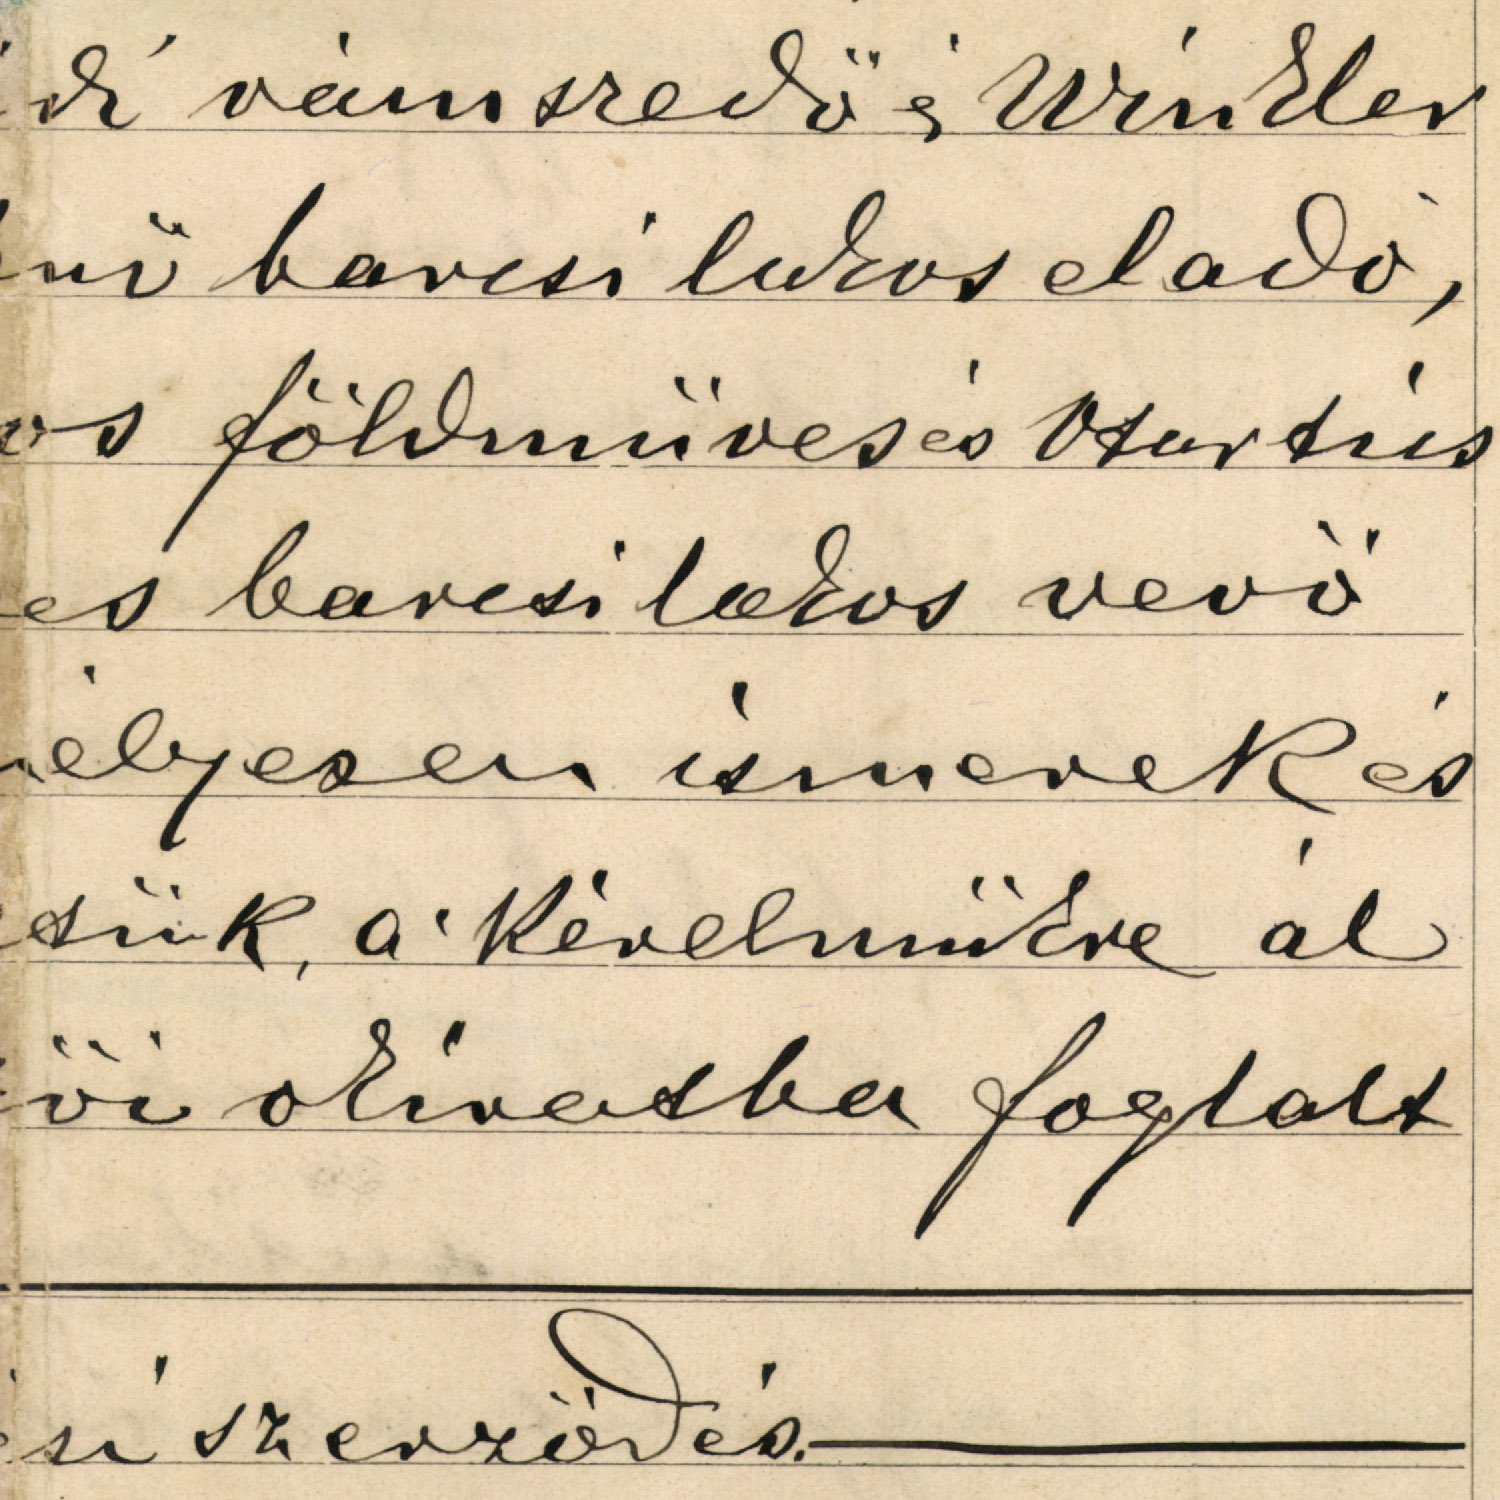 di vámszedő és Winkler
nő barcsi lakos eladó,
os földmüves és
es barcsi lakos vevő
élyesen ismerek és
tük, a kérelmükre al
vői okiratba foglalt
si szerződés.